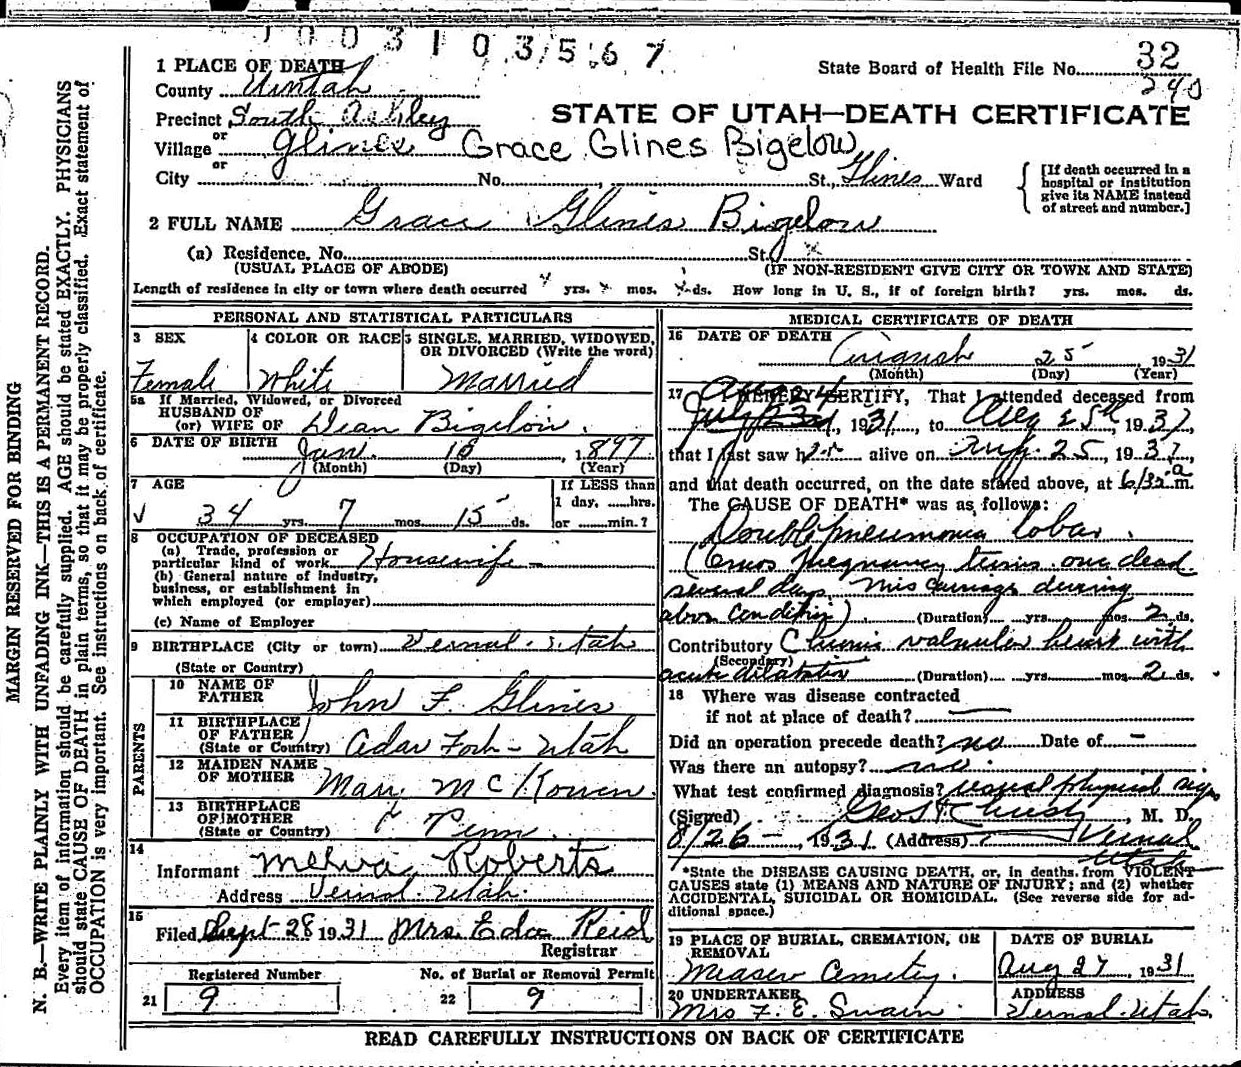 1 0 0 3 1 0 3 5 6 7
32
State Board of Health File No.
290
1 PLACE OF DEATH
County Uintah
Precinct South Ashley
or
Village Glines Grace Glines Bigelow
or
City No. St., Glines Ward
STATE OF UTAH—DEATH CERTIFICATE
[If death occurred in a
hospital or institution
give its NAME instead
of street and number.]
2 FULL NAME Grace Glines Bigelow
(a) Residence. No. St.
(USUAL PLACE OF ABODE) (IF NON-RESIDENT GIVE CITY OR TOWN AND STATE)
Length of residence in city or town where death occurred yrs. mos. ds. How long in U. S., if of foreign birth? yrs. mos. ds.
PERSONAL AND STATISTICAL PARTICULARS
3 SEX
Female
4 COLOR OR RACE
White
5 SINGLE, MARRIED, WIDOWED,
OR DIVORCED (Write the word)
Married
5a If Married, Widowed, or Divorced
HUSBAND OF
(or) WIFE OF Dean Bigelow.
6 DATE OF BIRTH Jan. 10, 1897
(Month) (Day) (Year)
7 AGE
34 yrs. 7 mos. 15 ds.
If LESS than
1 day, ......hrs.
or ........min.?
8 OCCUPATION OF DECEASED
(a) Trade, profession or
particular kind of work Housewife -
(b) General nature of industry,
business, or establishment in
which employed (or employer)
(c) Name of Employer
9 BIRTHPLACE (City or town) Vernal. Utah
(State or Country)
PARENTS
10 NAME OF
FATHER John F. Glines
11 BIRTHPLACE
OF FATHER
(State or Country) Cedar Fork - Utah
12 MAIDEN NAME
OF MOTHER Mary McKowen.
13 BIRTHPLACE
OF MOTHER
(State or Country) Penn.
14
Informant Melva Roberts
Address Vernal. Utah.
15
Filed Sept-28 1931 Mrs Eda Reid
Registrar
Registered Number
21 9
No. of Burial or Removal Permit
22 9
MEDICAL CERTIFICATE OF DEATH
16 DATE OF DEATH
August 25, 1931
(Month) (Day) (Year)
17 I HEREBY CERTIFY, That I attended deceased from
Aug 24
July 23rd, 1931, to Aug 25th, 1931,
that I last saw her alive on Aug. 25, 1931,
and that death occurred, on the date stated above, at 6/35 a m.
The CAUSE OF DEATH* was as follows:
Double pneumonia lobar
pregnancy twins one dead
several days. Miscarriage during
above condition) (Duration) yrs. mos. 2 ds.
Contributory Chronic valvular heart with
(Secondary)
acute dilatation (Duration) yrs. mos. 2 ds.
18 Where was disease contracted
if not at place of death? —
Did an operation precede death? no Date of –
Was there an autopsy? no.
What test confirmed diagnosis? usual physical signs
(Signed) , M. D.
8/26 – , 1931 (Address) Vernal
Utah
*State the DISEASE CAUSING DEATH, or, in deaths from VIOLENT
CAUSES state (1) MEANS AND NATURE OF INJURY; and (2) whether
ACCIDENTAL, SUICIDAL OR HOMICIDAL. (See reverse side for ad-
ditional space.)
19 PLACE OF BURIAL, CREMATION, OR
REMOVAL
Cemetery.
DATE OF BURIAL
Aug 27, 1931
20 UNDERTAKER
Mrs F. E. Swain.
ADDRESS
Vernal Utah.
READ CAREFULLY INSTRUCTIONS ON BACK OF CERTIFICATE
MARGIN RESERVED FOR BINDING
N. B.—WRITE PLAINLY WITH UNFADING INK—THIS IS A PERMANENT RECORD.
Every item of information should be carefully supplied. AGE should be stated EXACTLY. PHYSICIANS
should state CAUSE OF DEATH in plain terms, so that it may be properly classified. Exact statement of
OCCUPATION is very important. See instructions on back of certificate.